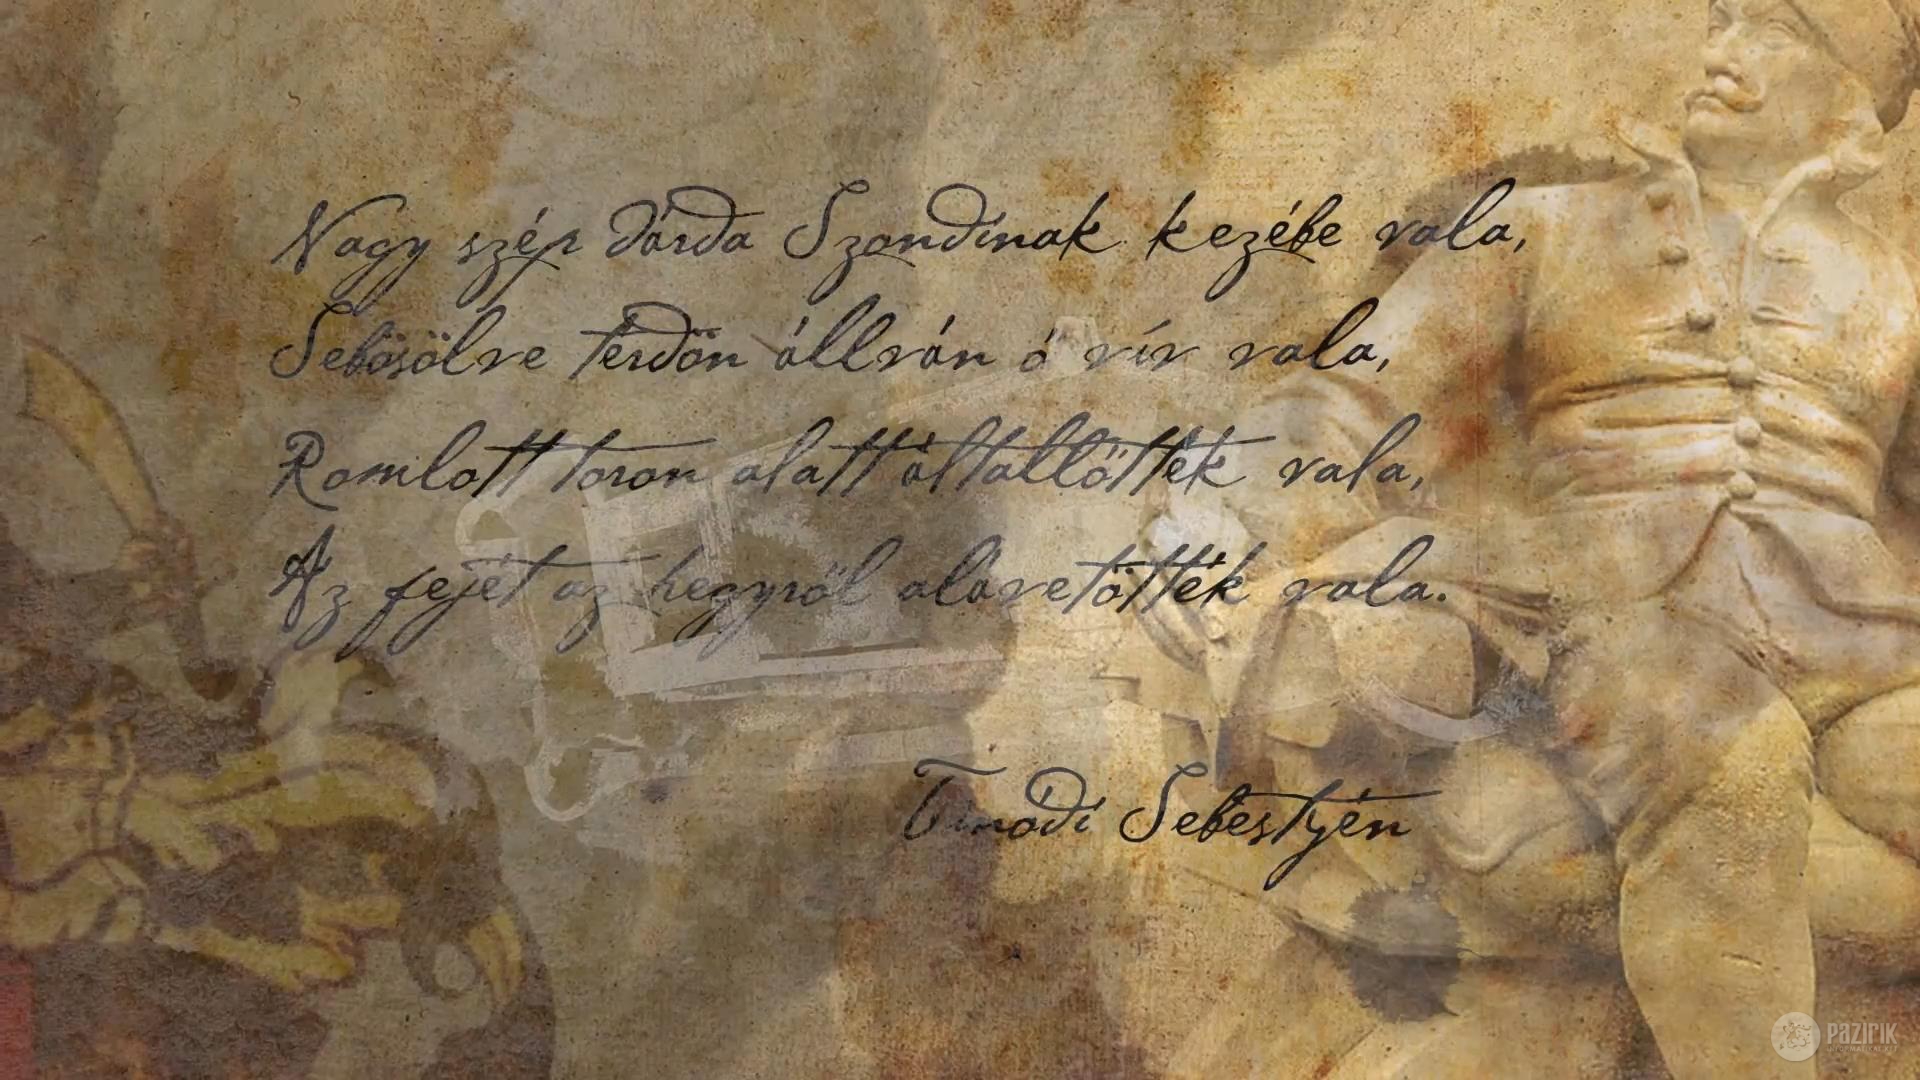 Nagy szép dárda Szondinak kezébe vala,
Sebösölve térdön állván ó vív vala,
Romlott toron alatt általlőtték vala,
Az fejét az hegyről alávetötték vala.
Tinódi Sebestyén
PAZIRIK
INFORMATIKAI KFT